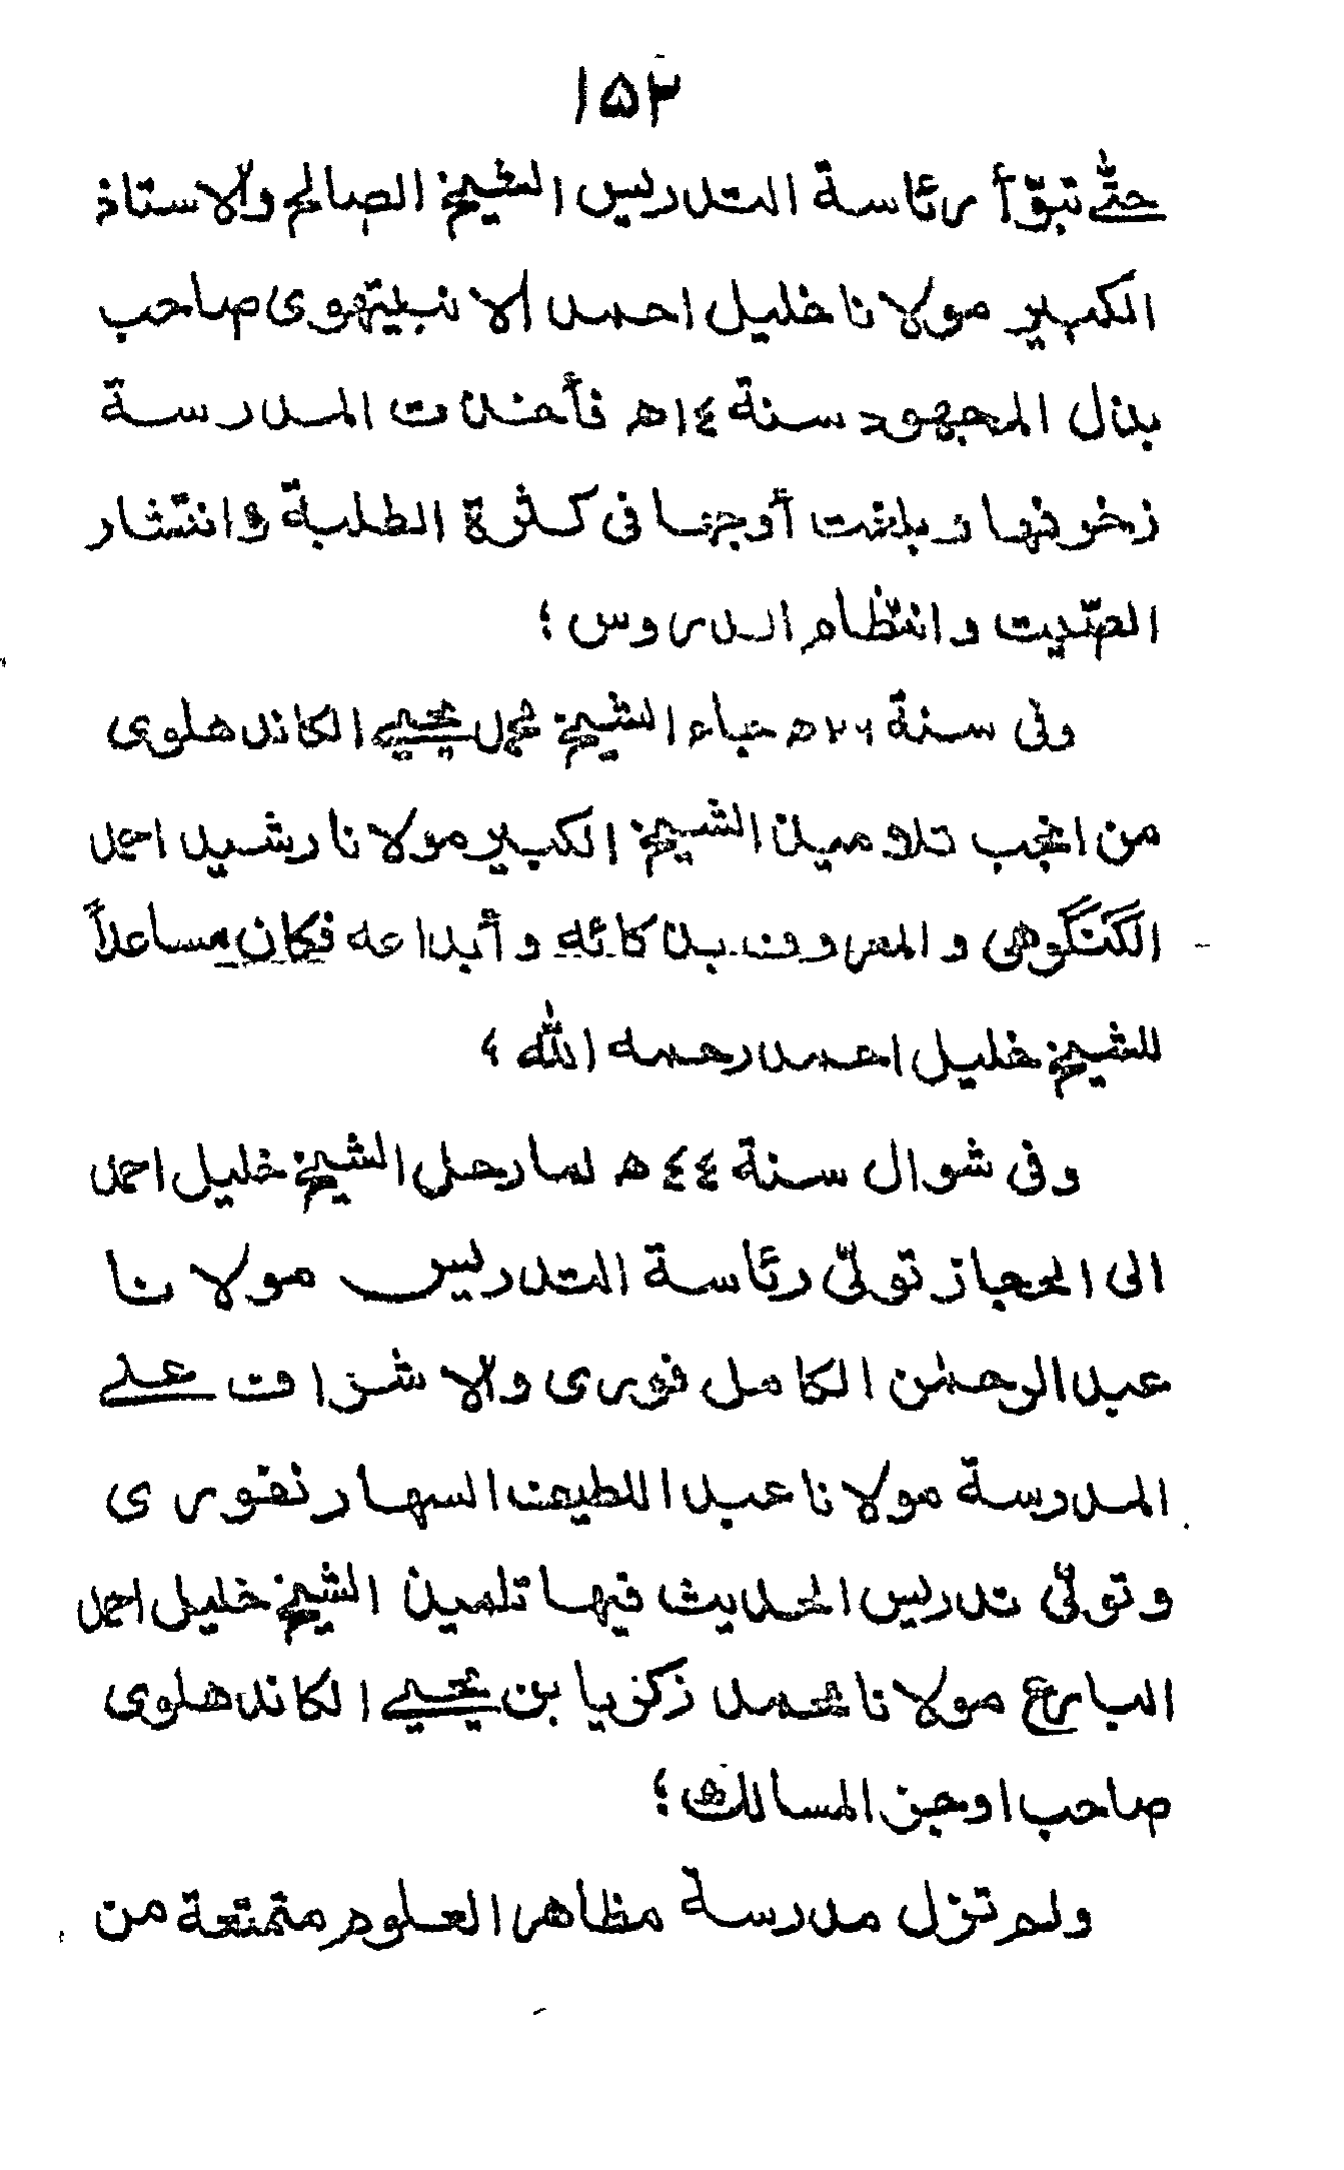 ١٥٢
حتّٰى تبوّأ رئاسة التدريس الشيخ الصالح والاستاذ
الكبير مولانا خليل احمد الانبيتهوى صاحب
بذل المجهود سنة ١٤ھ فأخذت المدرسة
زخرفها وبلغت أوجها فى كثرة الطلبة وانتشار
الصّيت وانتظام الدروس ؛
وفى سنة ٢٦ھ جاء الشيخ محمد يحيى الكاندهلوى
من انجب تلاميذ الشيخ الكبير مولانا رشيد احمد
الگنگوهى والمعروف بذكائه وأبداعه فكان مساعداً
للشيخ خليل احمد رحمه الله ؛
وفى شوال سنة ٤٤ھ لما رحل الشيخ خليل احمد
الى الحجاز تولّى رئاسة التدريس مولانا
عبد الرحمٰن الكامل فورى والاشراف على
المدرسة مولانا عبد اللطيف السهارنفورى
وتولّى تدريس الحديث فيها تلميذ الشيخ خليل احمد
البارع مولانا محمد زكريا بن يحيى الكاندهلوى
صاحب اوجز المسالك ؛
ولم تزل مدرسة مظاهر العلوم متمتعة من